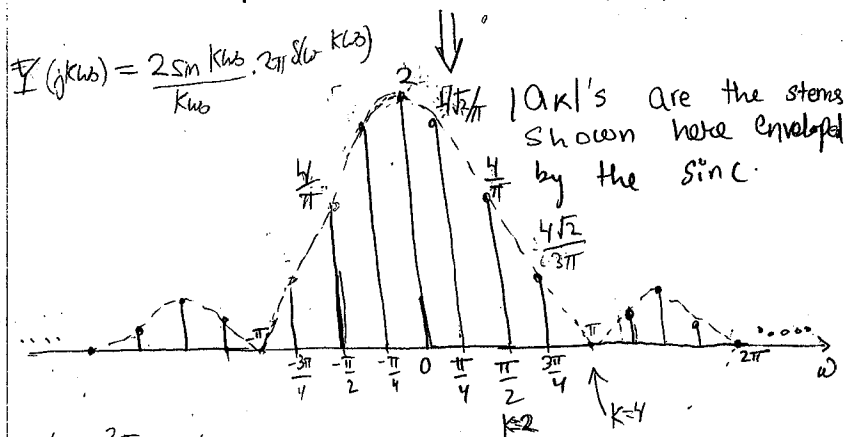 Ψ(jkω₀) = 2 sin kω₀ / kω₀ · 2π δ(ω - kω₀)
2
4√2/π
|ak|'s are the stems
shown here enveloped
by the sinc.
4/π
4/π
4√2/3π
..... π π 2π .....
-3π/4 -π/2 -π/4 0 π/4 π/2 3π/4 ω
k=2 k=4